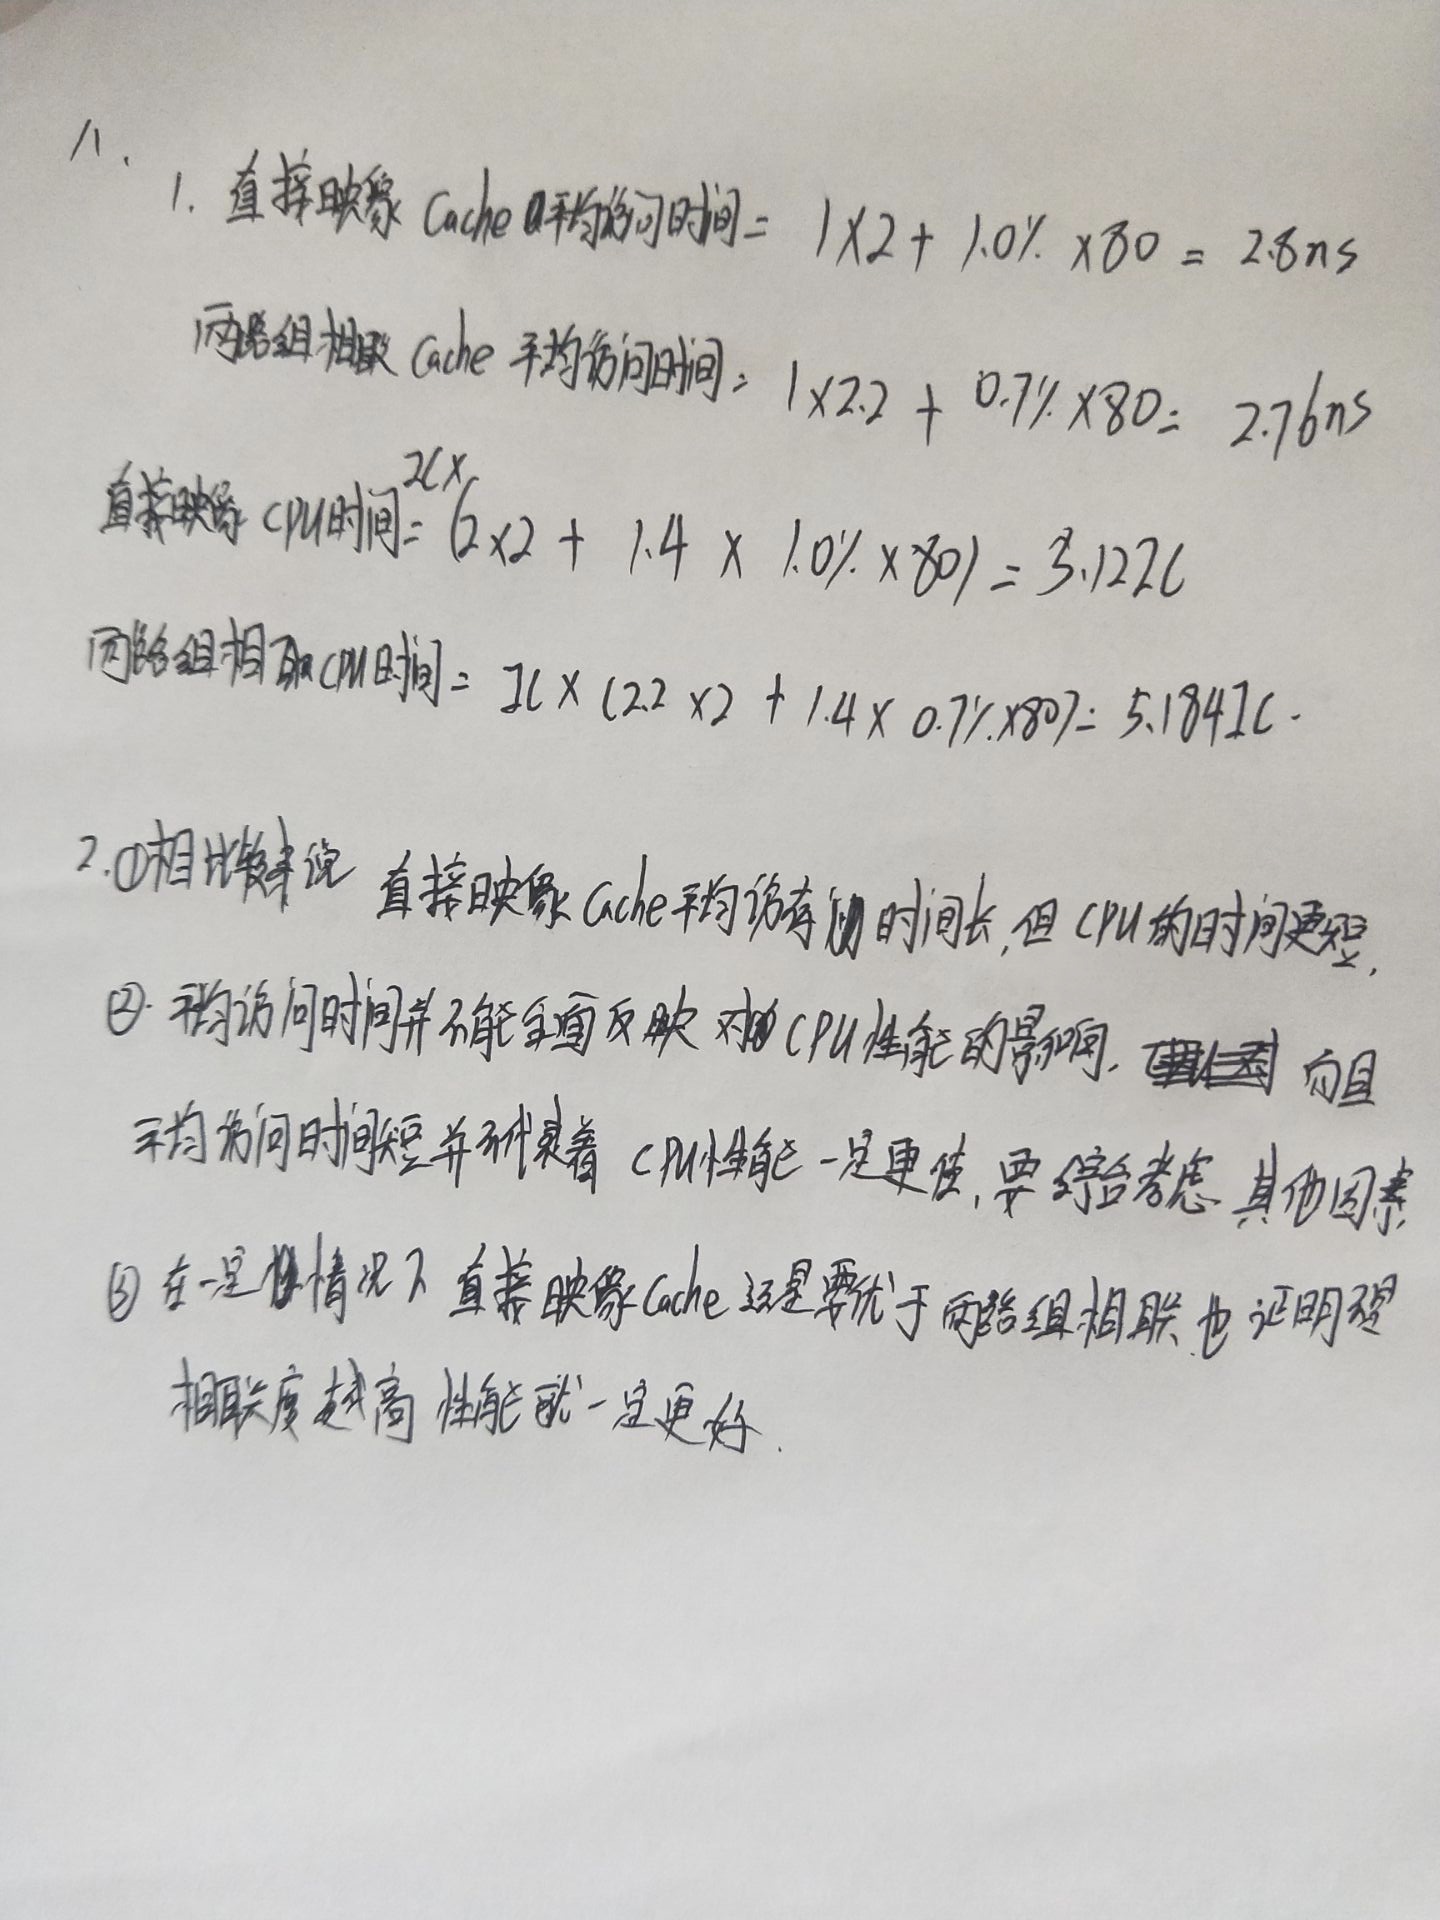 八.
1. 直接映像 Cache 平均访问时间 = 1×2 + 1.0% ×80 = 2.8ns
两路组相联 Cache 平均访问时间 = 1×2.2 + 0.7% ×80 = 2.76ns
直接映像 CPU时间 = IC× (2×2 + 1.4 × 1.0% ×80) = 5.12IC
两路组相联CPU时间 = IC × (2.2 ×2 + 1.4× 0.7%×80) = 5.184IC.
2. ①相比较来说 直接映像Cache平均访存时间长,但CPU的时间更短,
②. 平均访问时间并不能全面反映对CPU性能的影响, 而且
平均访问时间短并不代表着 CPU性能一定更佳, 要综合考虑 其他因素
③ 在一定情况下 直接映像Cache 还是要优于两路组相联 也证明不是
相联度越高 性能就一定更好.